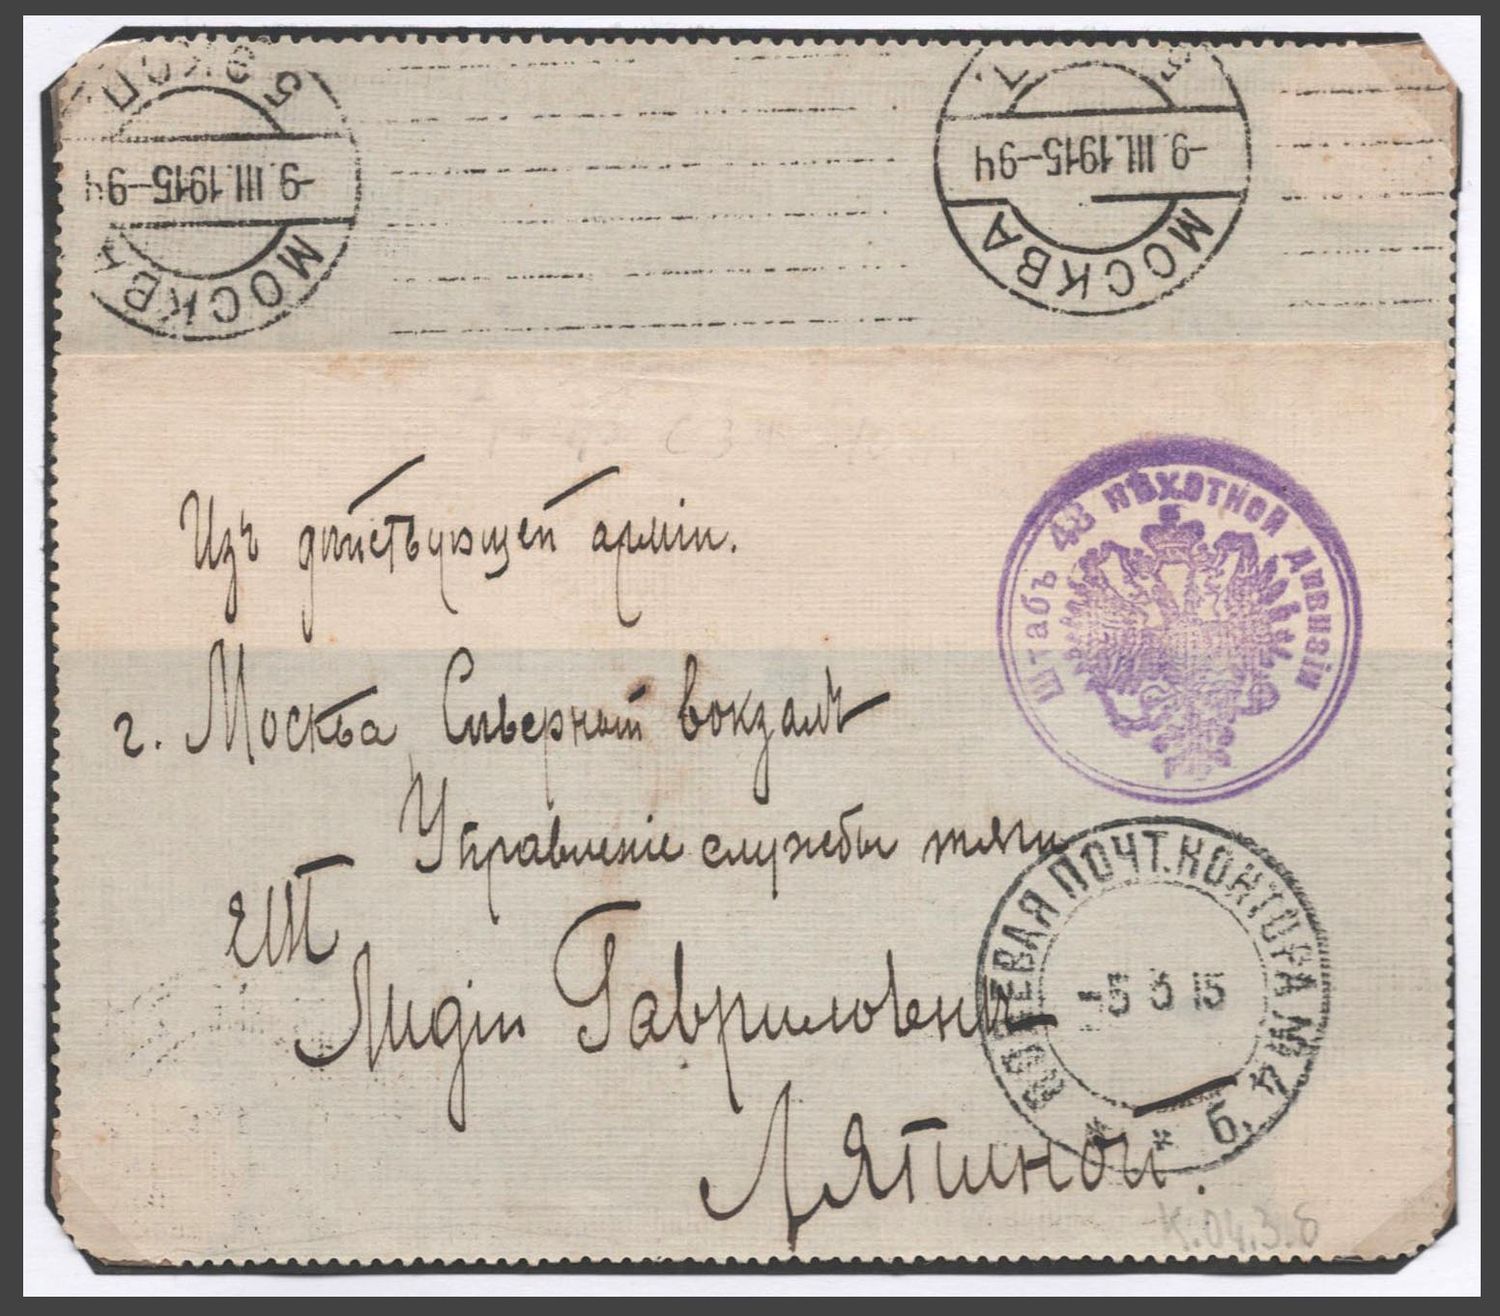 5 ЭКСП.
-9.III.1915-94
МОСКВА
-9.III.1915-94
МОСКВА
Штабъ 48 пѣхотной дивизіи
Изъ дѣйствующей арміи.
г. Москва Сѣверный вокзалъ
Управленіе службы тяги
ЕШ
Лидіи Гавриловнѣ
Лятиной.
ПОЛЕВАЯ ПОЧТ. КОНТОРА № 4
-5 3 15
* * Б.
К.04.3.б